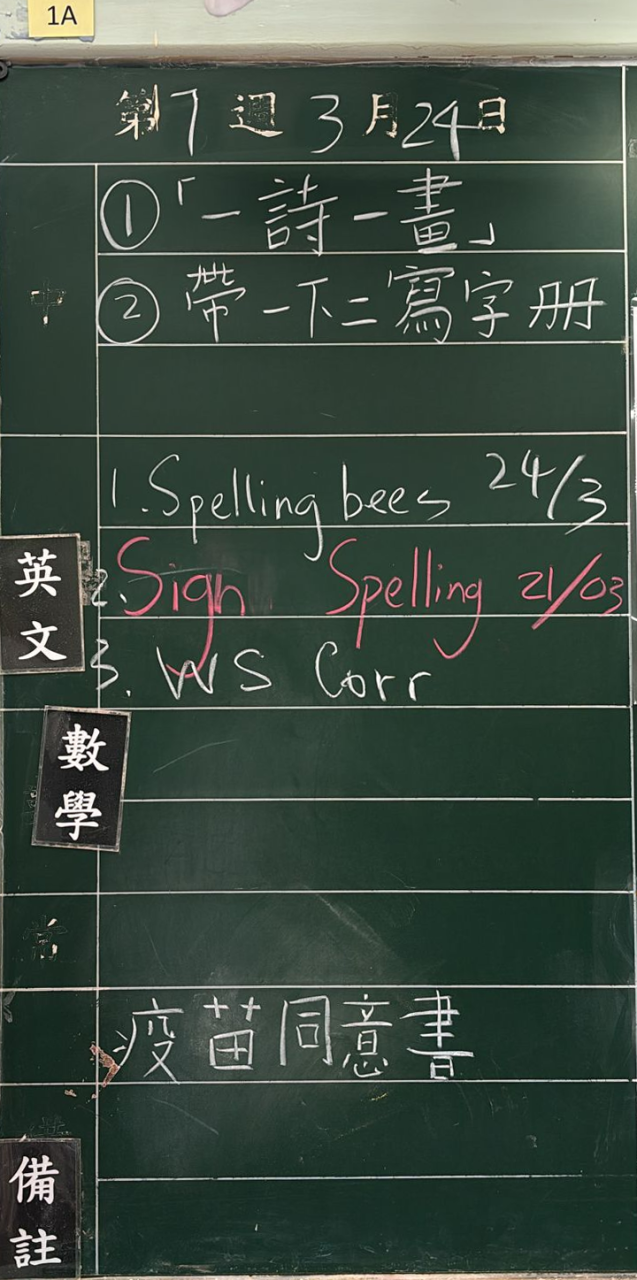 1A
第7週3月24日
中
①「一詩一畫」
②帶一下二寫字册
英文
1. Spelling bees 24/3
2. Sign Spelling 21/03
3. WS Corr
數學
常
疫苗同意書
備註